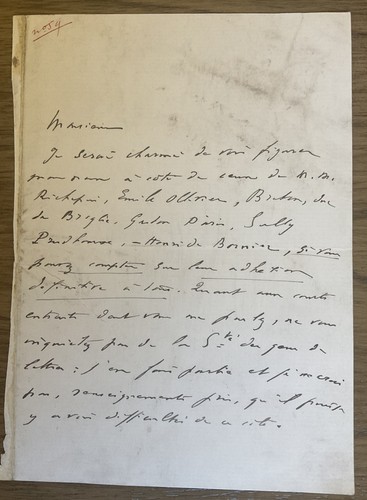 n° 54
Monsieur
Je serai charmé de voir figurer
mon nom à côté de ceux de M. M.
Richepin, Emile Ollivier, Breton, duc
de Broglie, Gaston Paris, Sully
Prudhomme, – Henri de Bornier, si vous
pouvez compter sur leur adhésion
définitive à tous. Quant aux courts
extraits dont vous me parlez, ne vous
inquiétez pas de la Sté des gens de
lettres : j'en fais partie et je ne crois
pas, renseignements pris, qu'il puisse
y avoir difficulté de ce côté.